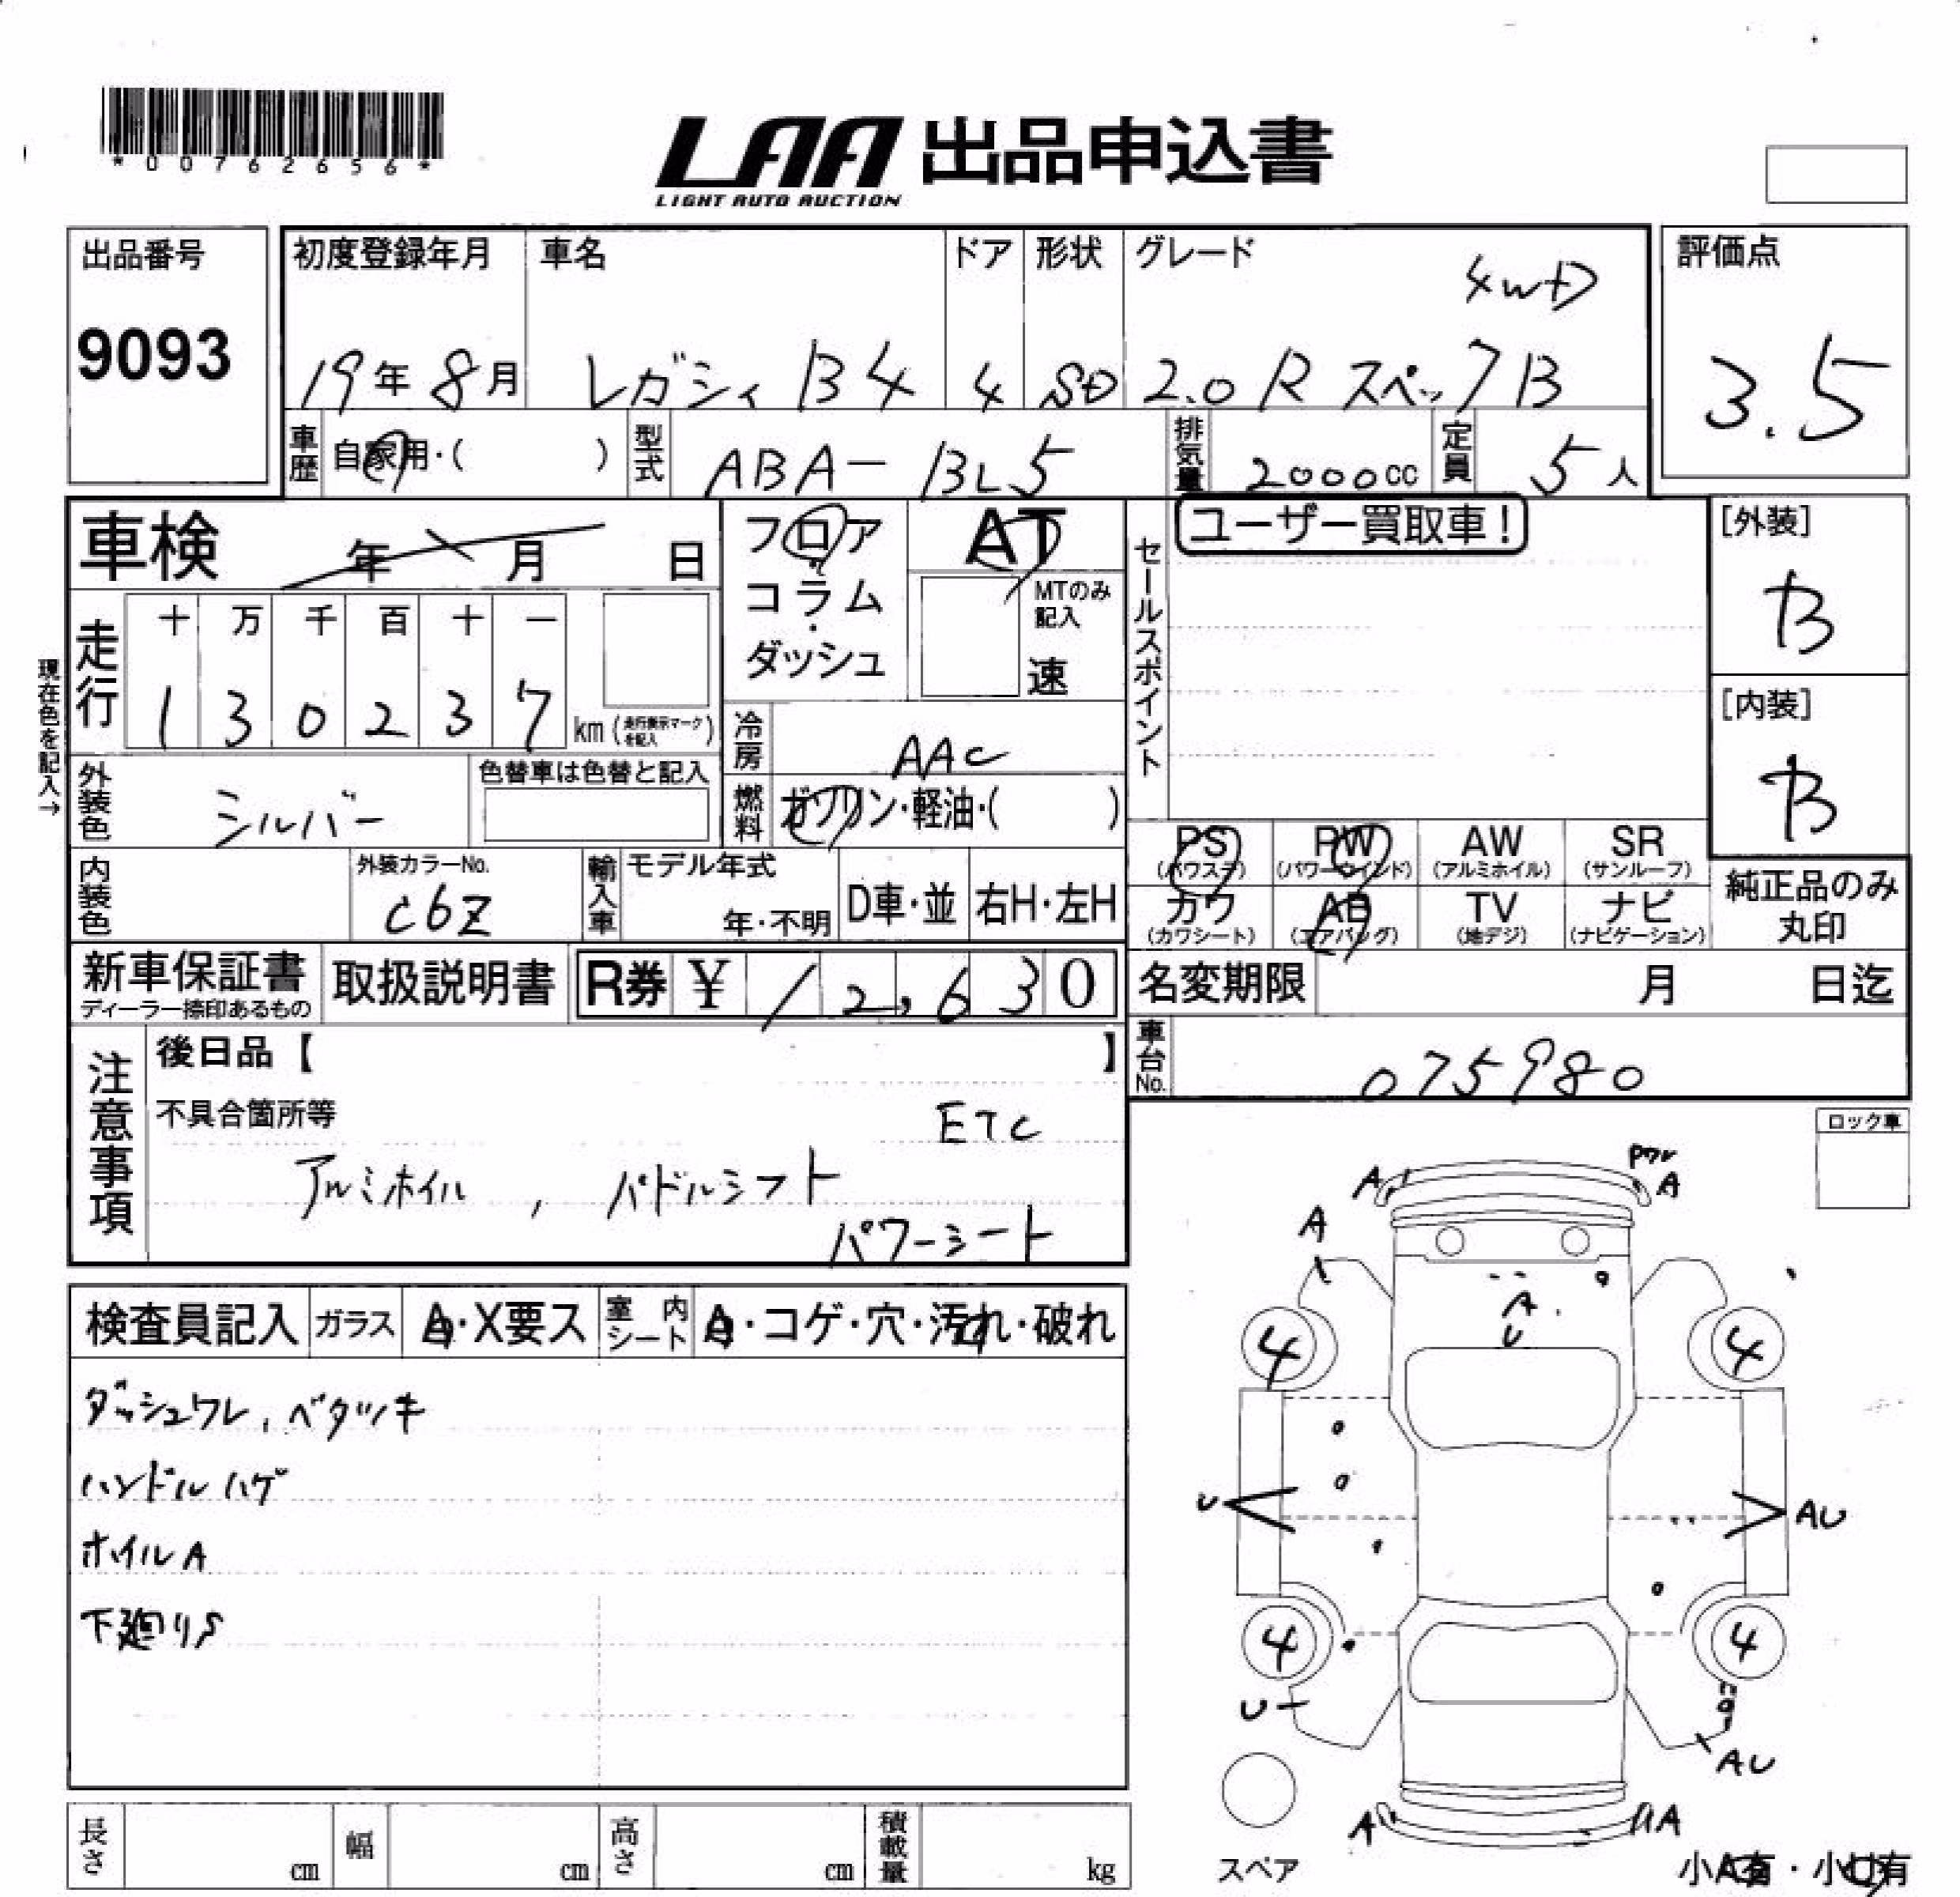 *00762656*
LAA 出品申込書
LIGHT AUTO AUCTION
出品番号 9093
初度登録年月 19年8月
車名 レガシィ B4
ドア 4
形状 SD
グレード 4WD
2.0 R スペック B
評価点 3.5
車歴 自家用・( )
型式 ABA-BL5
排気量 2000cc
定員 5人
車検 年 月 日
フロア・コラム・ダッシュ
AT
MTのみ記入
速
セールスポイント
ユーザー買取車!
[外装] B
[内装] B
現在色を記入→
走行 十 万 千 百 十 一
1 3 0 2 3 7 km(走行表示マークを記入)
冷房 AAC
燃料 ガソリン・軽油・( )
外装色 シルバー
色替車は色替と記入
内装色
外装カラーNo. C6Z
輸入車 モデル年式 年・不明
D車・並 右H・左H
PS(パワステ) PW(パワーウインド) AW(アルミホイル) SR(サンルーフ)
カワ(カワシート) AB(エアバッグ) TV(地デジ) ナビ(ナビゲーション)
純正品のみ丸印
新車保証書
ディーラー捺印あるもの
取扱説明書
R券 ¥12,630
名変期限 月 日迄
車台No. 075980
注意事項
後日品【 】
不具合箇所等
ETC
アルミホイル , パドルシフト
パワーシート
ロック車
検査員記入 ガラス A・X要ス 室内シート A・コゲ・穴・汚れ・破れ
ダッシュワレ, ベタツキ
ハンドルハゲ
ホイルA
下廻りS
A A
A
A
U
4 4
U AU
4 4
U
AU
A A
スペア
小A有・小U有
長さ cm 幅 cm 高さ cm 積載量 kg